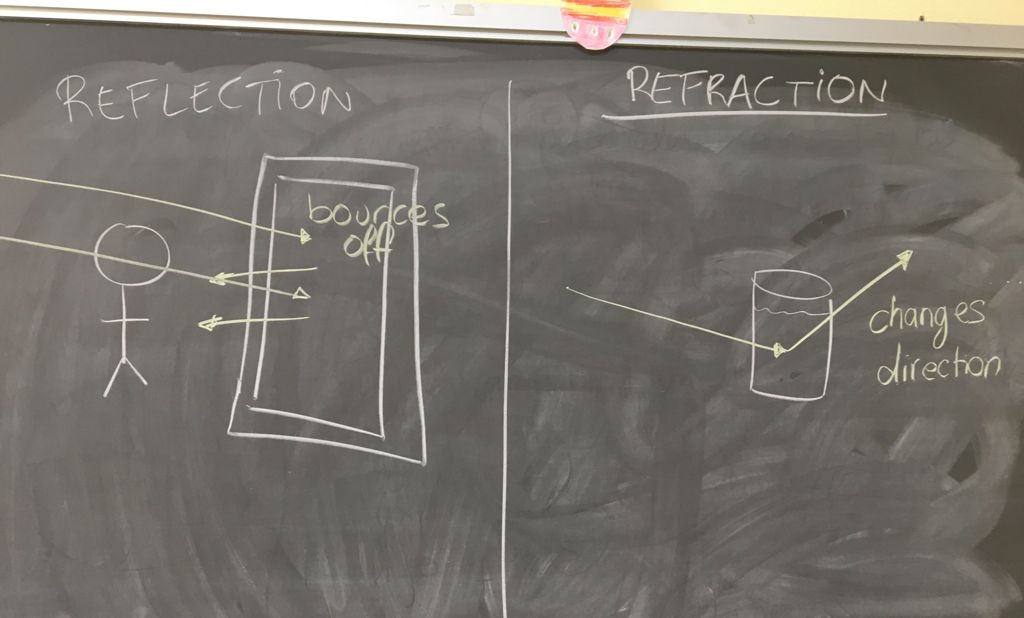 REFLECTION
bounces
off
REFRACTION
changes
direction